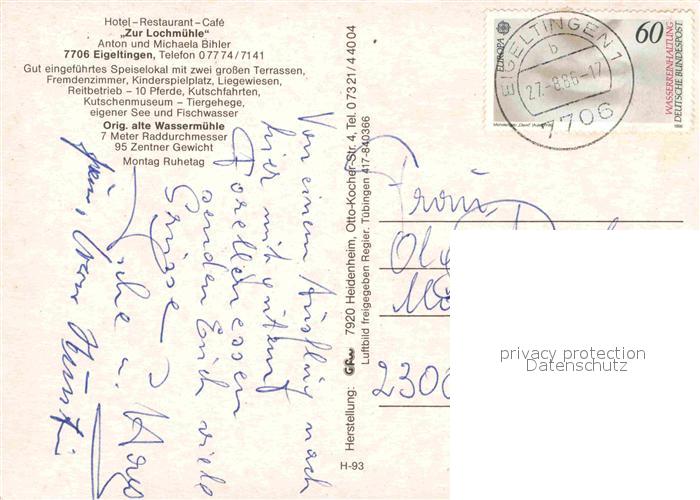 Hotel – Restaurant – Café
„Zur Lochmühle"
Anton und Michaela Bihler
7706 Eigeltingen, Telefon 07774/7141
Gut eingeführtes Speiselokal mit zwei großen Terrassen,
Fremdenzimmer, Kinderspielplatz, Liegewiesen,
Reitbetrieb – 10 Pferde, Kutschfahrten,
Kutschenmuseum – Tiergehege,
eigener See und Fischwasser
Orig. alte Wassermühle
7 Meter Raddurchmesser
95 Zentner Gewicht
Montag Ruhetag
Von einem Ausflug nach
hier mit gutem
Forellenessen
senden Euch viele
Grüsse
Herstellung: 7920 Heidenheim, Otto-Kocher-Str. 4, Tel. 07321/44004
Luftbild freigegeben Regier. Tübingen 417-843366
H-93
EUROPA
60
WASSERREINHALTUNG
DEUTSCHE BUNDESPOST
EIGELTINGEN 1
b
27.-8.86-17
7706
Frau
2300
privacy protection
Datenschutz